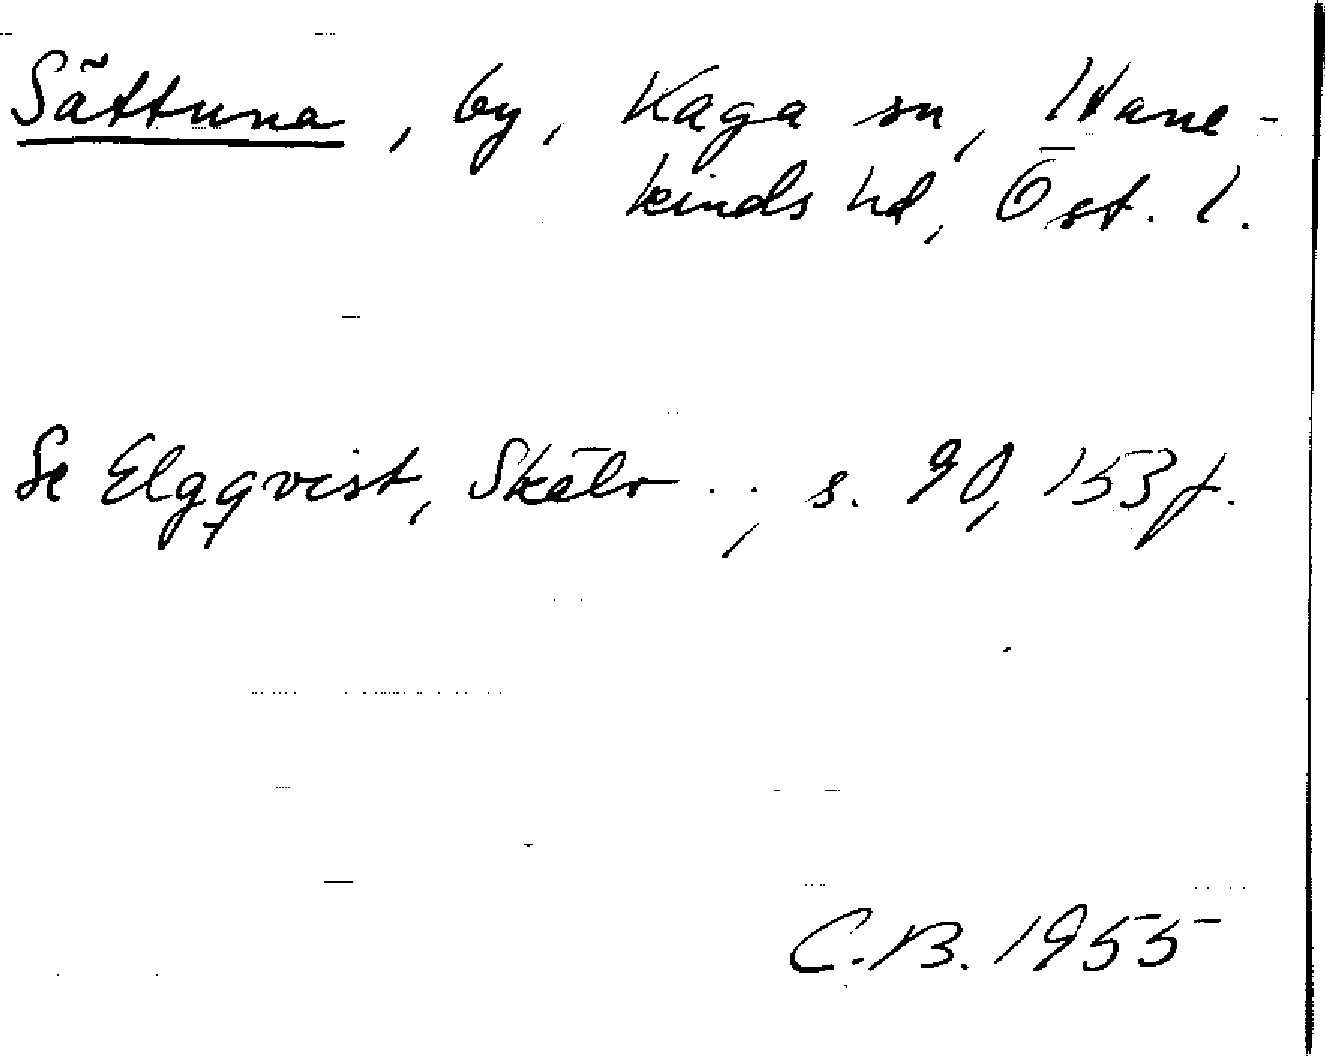 Sättuna, by, Kaga sn, Hane-
kinds hd, Öst. l.
Se Elgqvist, Skälv . ., s. 90, 153 f.
C.B. 1955